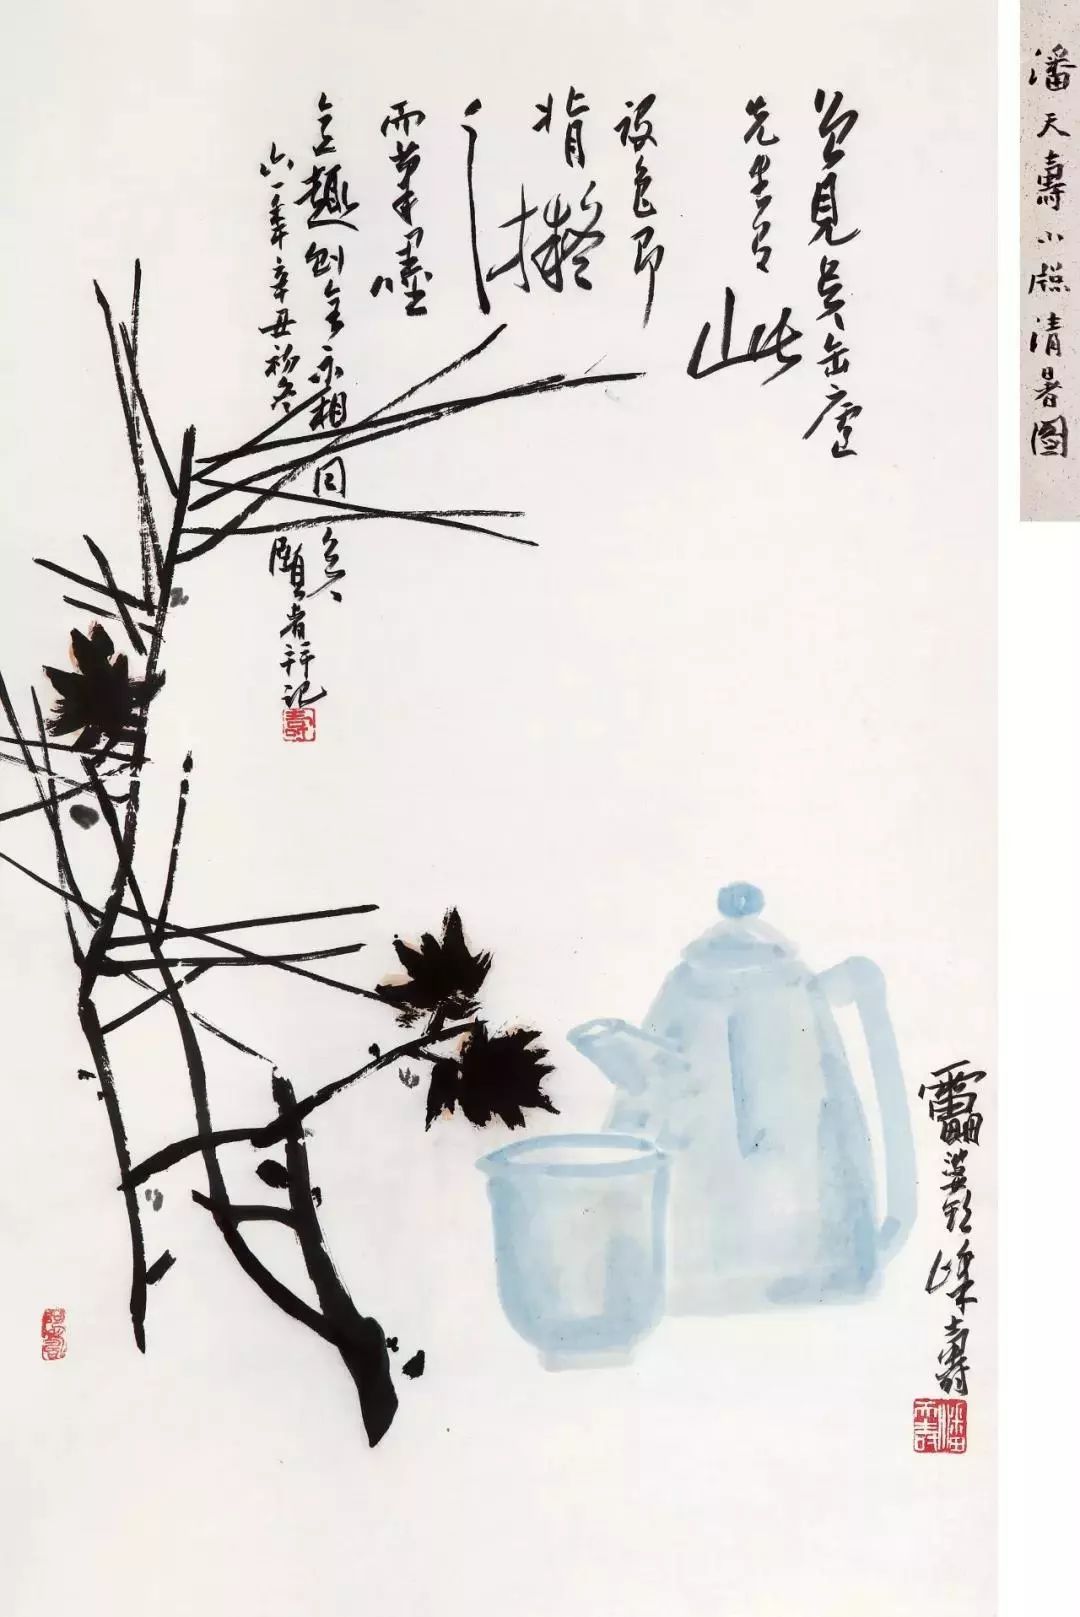 潘天壽小清暑图
曾見吳缶廬
先生有此
設色即
背擬
之
而筆墨
意趣則全不相同矣
六一年辛丑初冬頤者并記
壽
靁婆頭峰壽
潘天壽